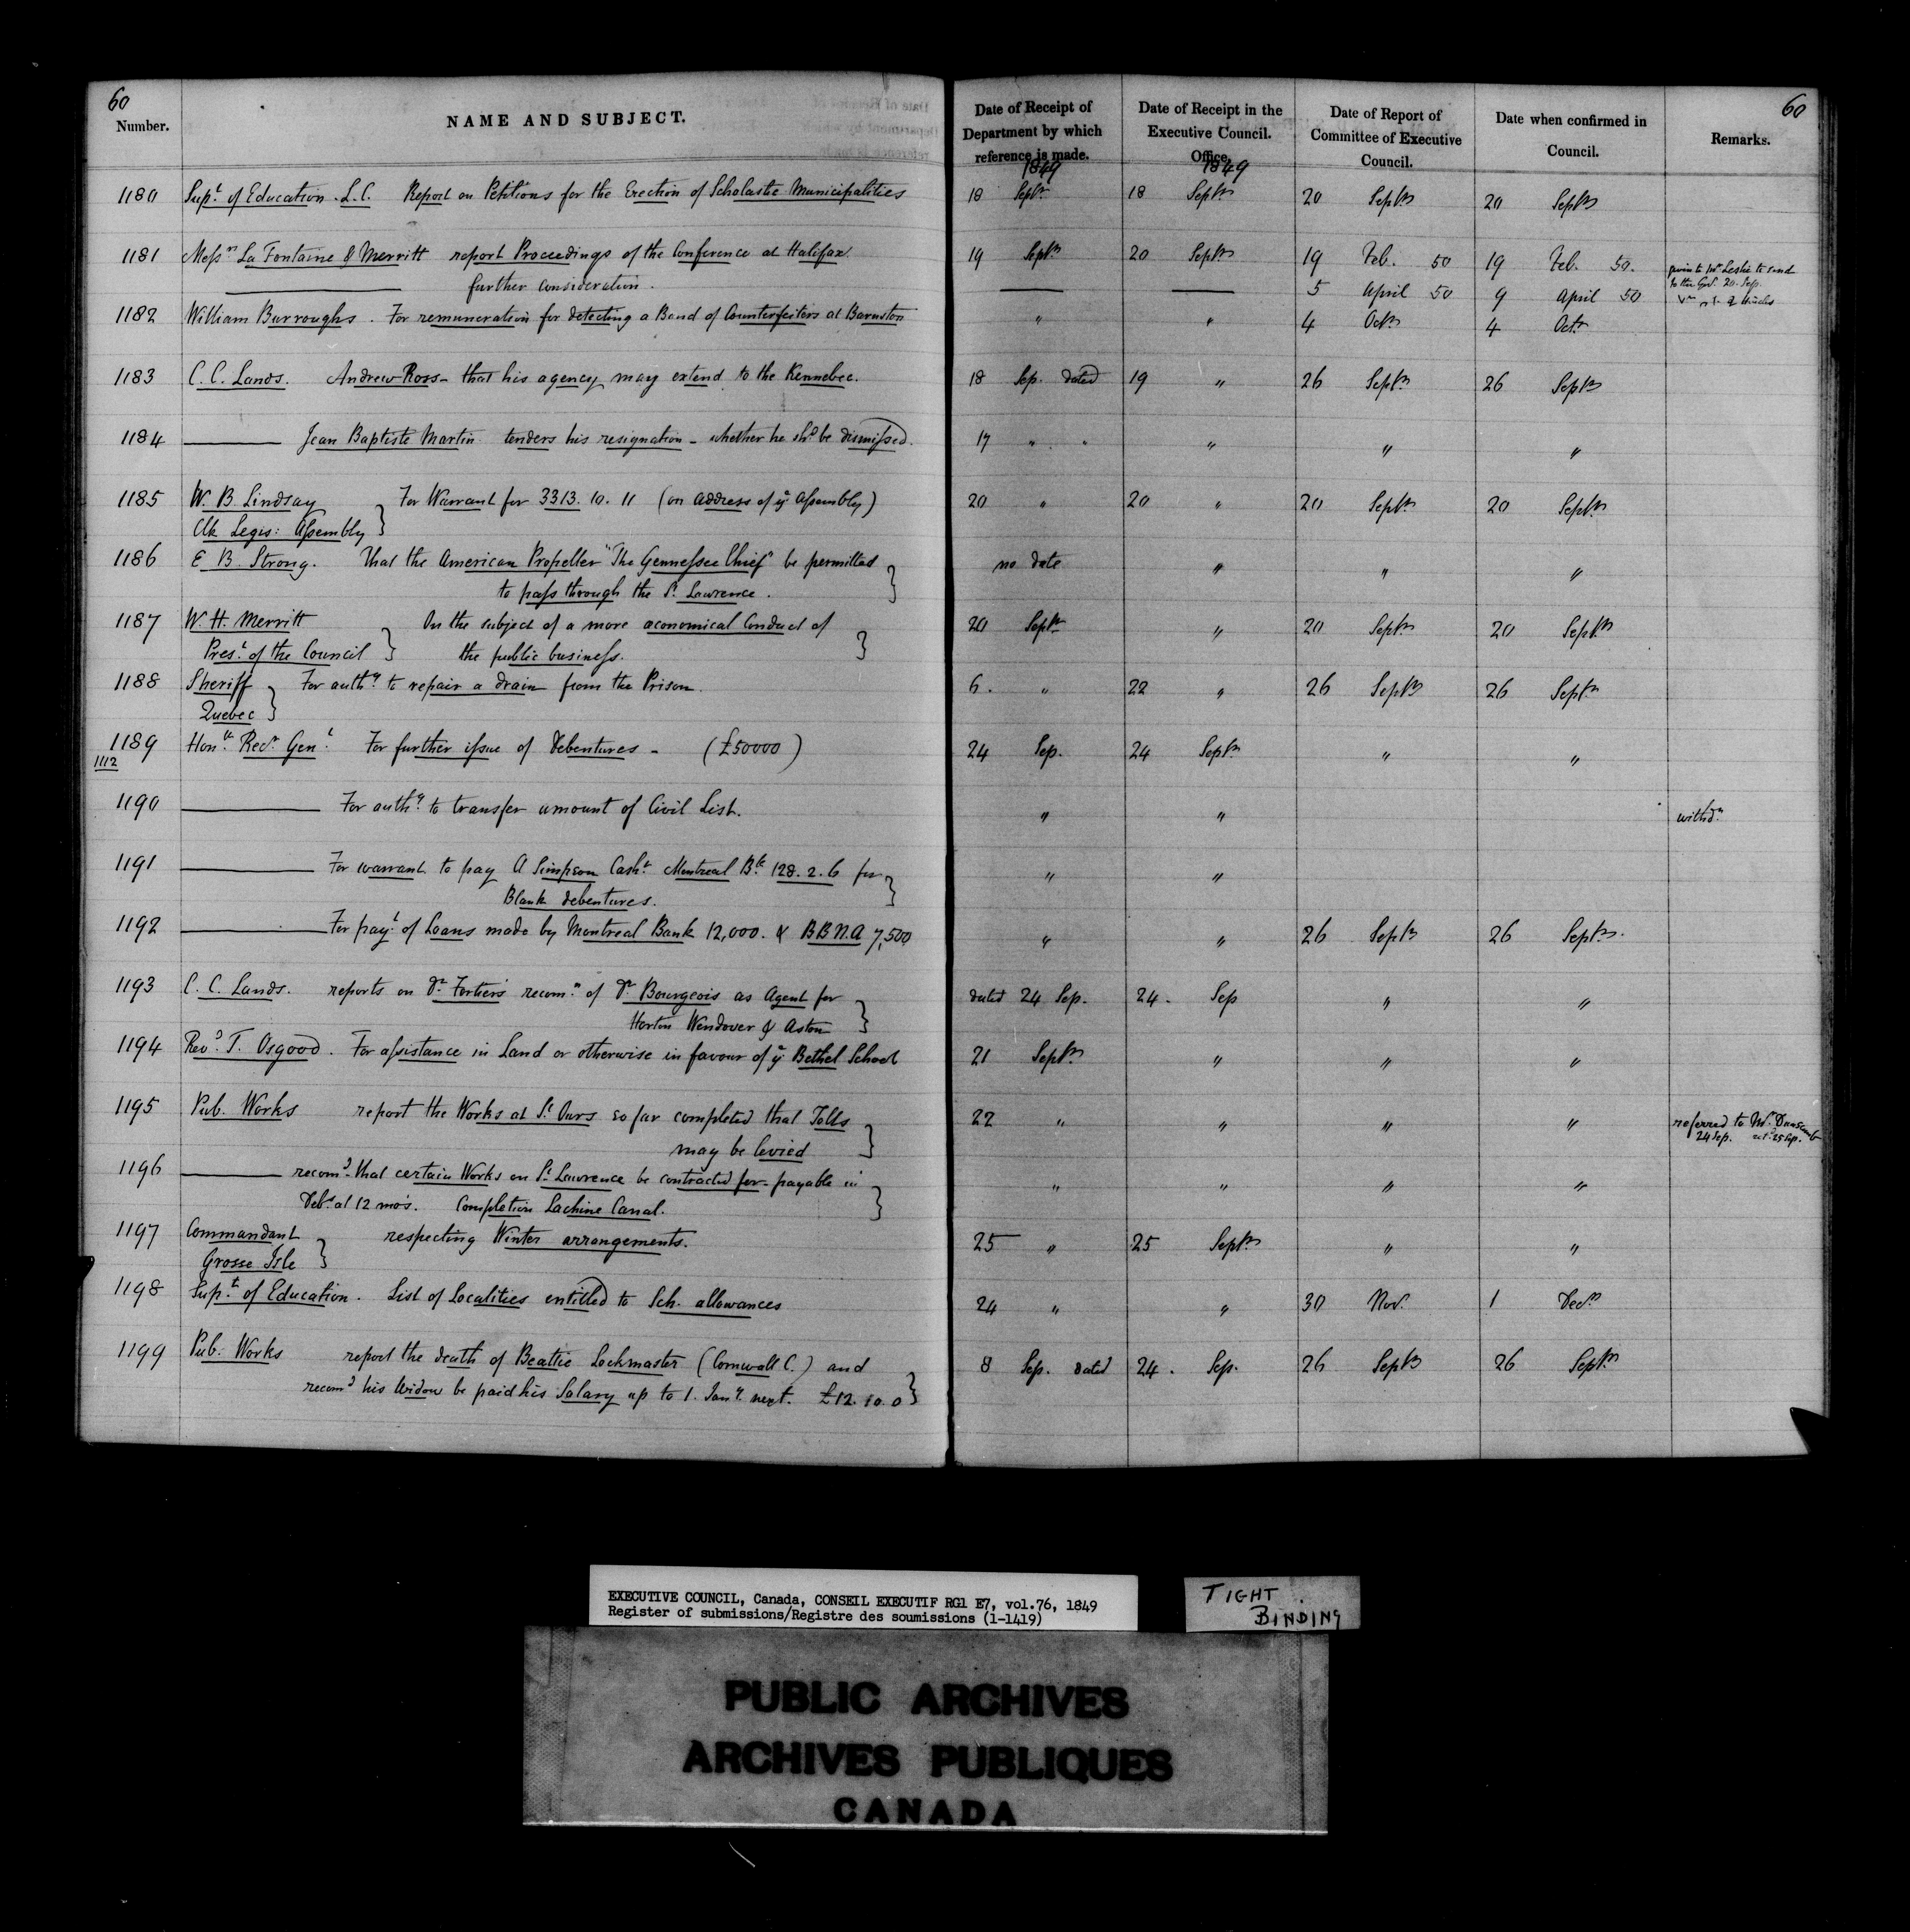 60
Number.
NAME AND SUBJECT.
Date of Receipt of
Department by which
reference is made.
1849
Date of Receipt in the
Executive Council.
Office.
1849
Date of Report of
Committee of Executive
Council.
Date when confirmed in
Council.
Remarks.
60
1180 Supt of Education. L.C. Report on Petitions for the Erection of Scholastic Municipalities 18 Septr 18 Septr 20 Septr 20 Septr
1181 Messrs La Fontaine & Merritt report Proceedings of the Conference at Halifax. 19 Septr 20 Septr 19 Feb. 50 19 Feb. 50. given to Mr Leslie to send
to the Govr 20. Sep.
further consideration. 5 April 50 9 April 50
1182 William Burroughs. For remuneration for detecting a Band of Counterfeiters at Barnston " " 4 Octr 4 Octr
1183 C. C. Lands. Andrew Ross - that his agency may extend to the Kennebec. 18 Sep. dated 19 " 26 Septr 26 Septr
1184 Jean Baptiste Martin tenders his resignation - whether he shd be dismissed. 17 " " " " "
1185 W. B. Lindsay } For Warrant for 3313. 10. 11 (on address of ye Assembly) 20 " 20 " 20 Septr 20 Septr
Clk Legis: Assembly
1186 E B. Strong. That the American Propeller "The Gennessee Chief" be permitted } no date " " "
to pass through the St Lawrence.
1187 W. H. Merritt } On the subject of a more œconomical Conduct of } 20 Septr " 20 Septr 20 Septr
Prest of the Council the public business.
1188 Sheriff } For authy to repair a drain from the Prison. 6. " 22 " 26 Septr 26 Septr
Quebec
1189 Honble Recr Genl For further issue of Debentures - (£50000) 24 Sep. 24 Septr " "
1112
1190 For authy to transfer amount of Civil List. " " withdn
1191 For warrant to pay A Simpson Cashr Montreal Bk 128. 2. 6 for } " "
Blank debentures.
1192 For payt of Loans made by Montreal Bank 12,000. & B B N.A 7,500 " " 26 Septr 26 Septr.
1193 C. C. Lands. reports on Dr Fortier's recomn of Dr Bourgeois as Agent for } dated 24 Sep. 24. Sep " "
Horton Wendover & Aston
1194 Revd T. Osgood. For assistance in Land or otherwise in favour of ye Bethel School 21 Septr " " "
1195 Pub. Works report the Works at St Ours so far completed that Tolls } 22 " " " " referred to Mr Dunscomb
24 Sep. retd 25 Sep.
may be levied
1196 recomd that certain Works on St Lawrence be contracted for - payable in } " " " "
Debs at 12 mos. Completion Lachine Canal.
1197 Commandant } respecting Winter arrangements. 25 " 25 Septr " "
Grosse Isle
1198 Supt of Education. List of Localities entitled to Sch. allowances 24 " " 30 Novr 1 Decr
1199 Pub. Works report the death of Beattie Lockmaster (Cornwall C.) and } 8 Sep. dated 24. Sep. 26 Septr 26 Septr
recomd his Widow be paid his Salary up to 1. Jany next. £12. 10. 0
EXECUTIVE COUNCIL, Canada, CONSEIL EXECUTIF RG1 E7, vol.76, 1849
Register of submissions/Registre des soumissions (1-1419)
TIGHT
BINDING
PUBLIC ARCHIVES
ARCHIVES PUBLIQUES
CANADA